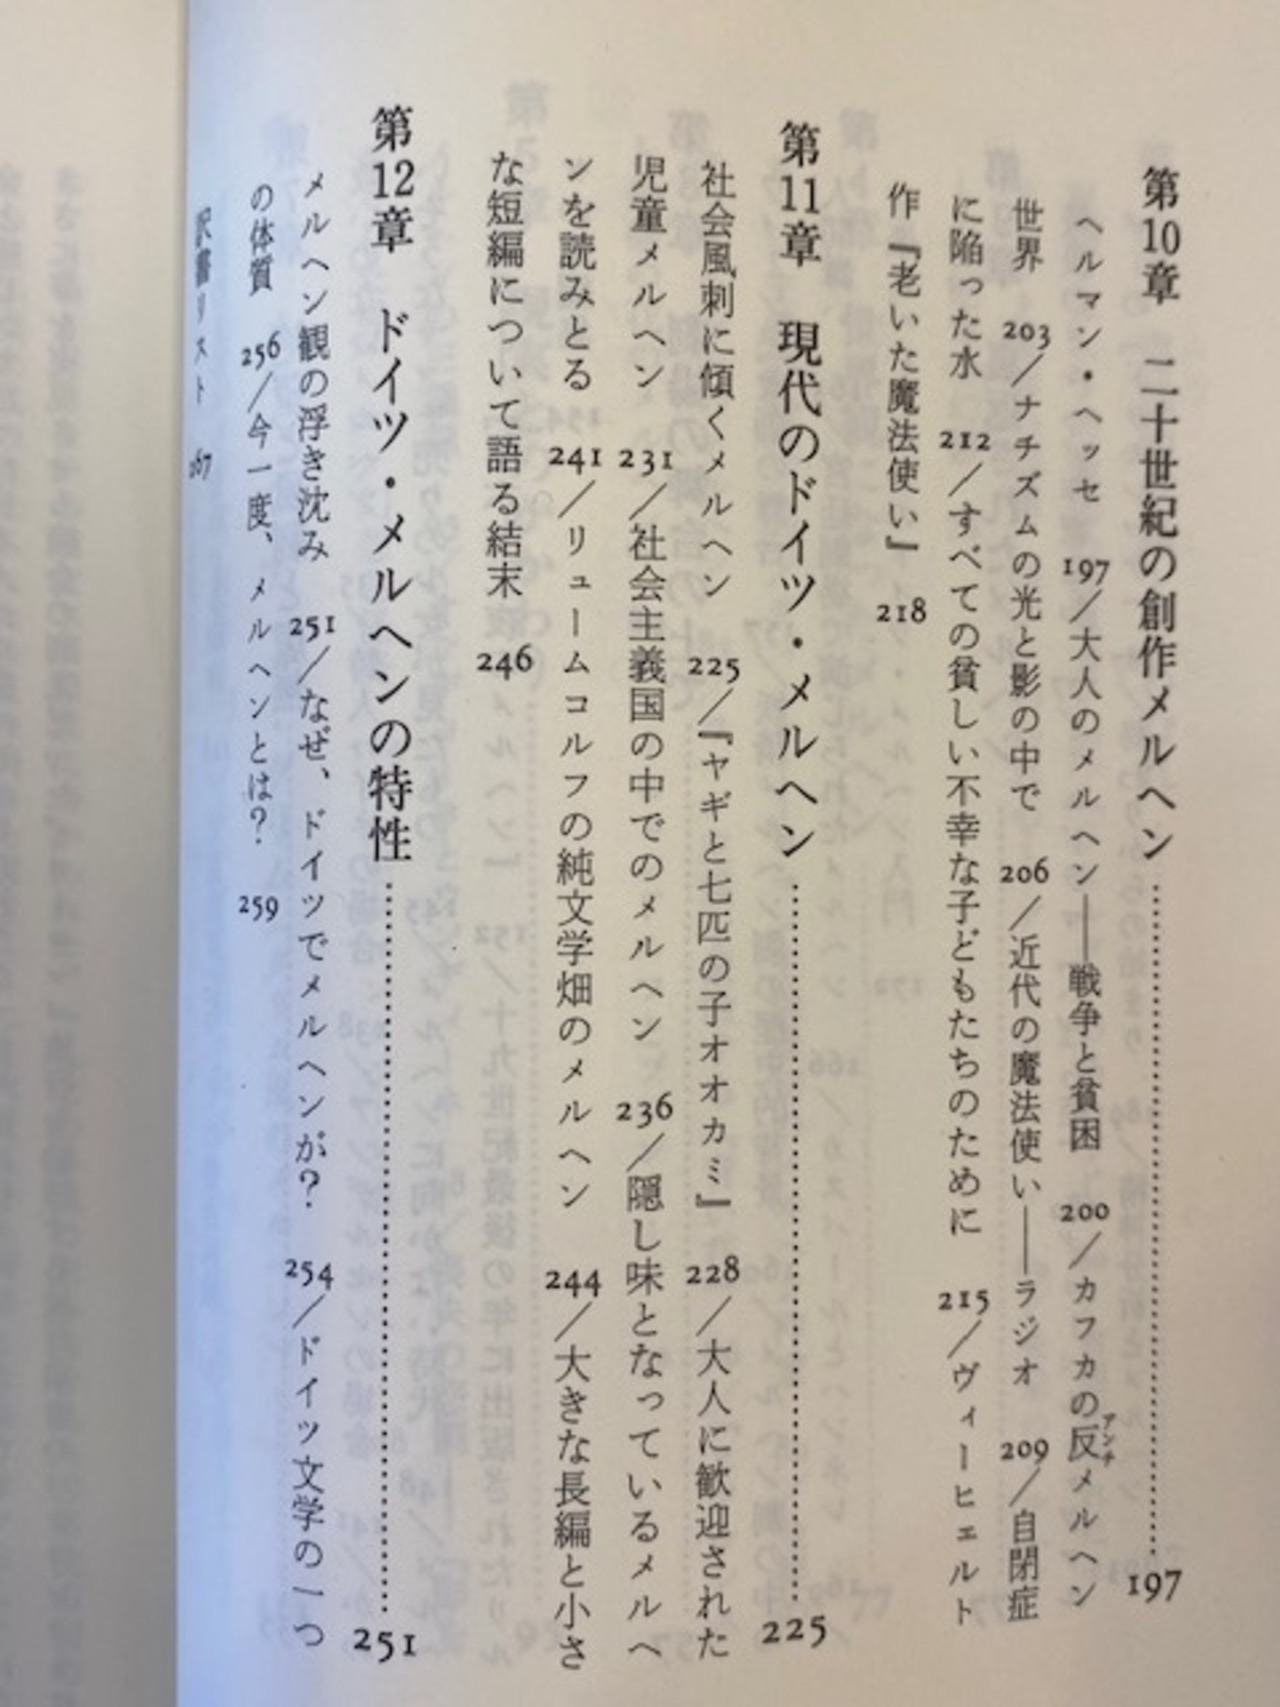 第10章　二十世紀の創作メルヘン……197
ヘルマン・ヘッセ　197／大人のメルヘン――戦争と貧困　200／カフカの反メルヘン
アンチ
世界　203／ナチズムの光と影の中で　206／近代の魔法使い――ラジオ　209／自閉症
に陥った水　212／すべての貧しい不幸な子どもたちのために　215／ヴィーヒェルト
作『老いた魔法使い』　218
第11章　現代のドイツ・メルヘン……225
社会風刺に傾くメルヘン　225／『ヤギと七匹の子オオカミ』　228／大人に歓迎された
児童メルヘン　231／社会主義国の中でのメルヘン　236／隠し味となっているメルヘ
ンを読みとる　241／リュームコルフの純文学畑のメルヘン　244／大きな長編と小さ
な短編について語る結末　246
第12章　ドイツ・メルヘンの特性……251
メルヘン観の浮き沈み　251／なぜ、ドイツでメルヘンが？　254／ドイツ文学の一つ
の体質　256／今一度、メルヘンとは？　259
訳書リスト　267